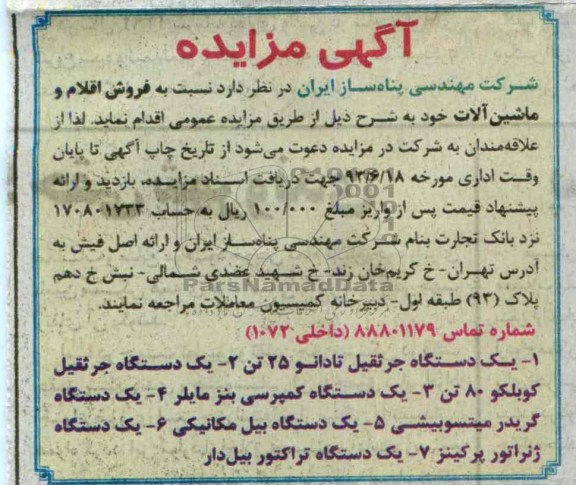 آگهی مزایده
شرکت مهندسی پناه‌ساز ایران در نظر دارد نسبت به فروش اقلام و
ماشین‌آلات خود به شرح ذیل از طریق مزایده عمومی اقدام نماید. لذا از
علاقه‌مندان به شرکت در مزایده دعوت می‌شود از تاریخ چاپ آگهی تا پایان
وقت اداری مورخه ۹۳/۶/۱۸ جهت دریافت اسناد مزایده، بازدید و ارائه
پیشنهاد قیمت پس از واریز مبلغ ۱۰۰/۰۰۰ ریال به حساب ۱۷۰۸۰۱۷۳۳
نزد بانک تجارت بنام شرکت مهندسی پناه‌ساز ایران و ارائه اصل فیش به
آدرس تهران- خ کریم‌خان زند- خ شهید عضدی شمالی- نبش خ دهم
پلاک (۹۳) طبقه اول- دبیرخانه کمیسیون معاملات مراجعه نمایند.
شماره تماس ۸۸۸۰۱۱۷۹ (داخلی ۱۰۷۲)
۱- یک دستگاه جرثقیل تادانو ۲۵ تن ۲- یک دستگاه جرثقیل
کوبلکو ۸۰ تن ۳- یک دستگاه کمپرسی بنز مایلر ۴- یک دستگاه
گریدر میتسوبیشی ۵- یک دستگاه بیل مکانیکی ۶- یک دستگاه
ژنراتور پرکینز ۷- یک دستگاه تراکتور بیل‌دار
ParsNamadData